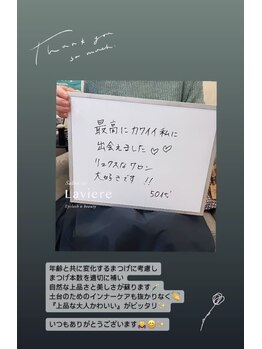 Thank you
so much.
最高にカワイイ私に
出会えました♡♡
リュクスなサロン
大好きです!!
50代
Salon de
Laviere
Eyelash & beauty
年齢と共に変化するまつげに考慮し
まつげ本数を適切に補い
自然な上品さと美しさが蘇ります
土台のためのインナーケアも抜かりなく
『上品な大人かわいい』がピッタリ
いつもありがとうございます